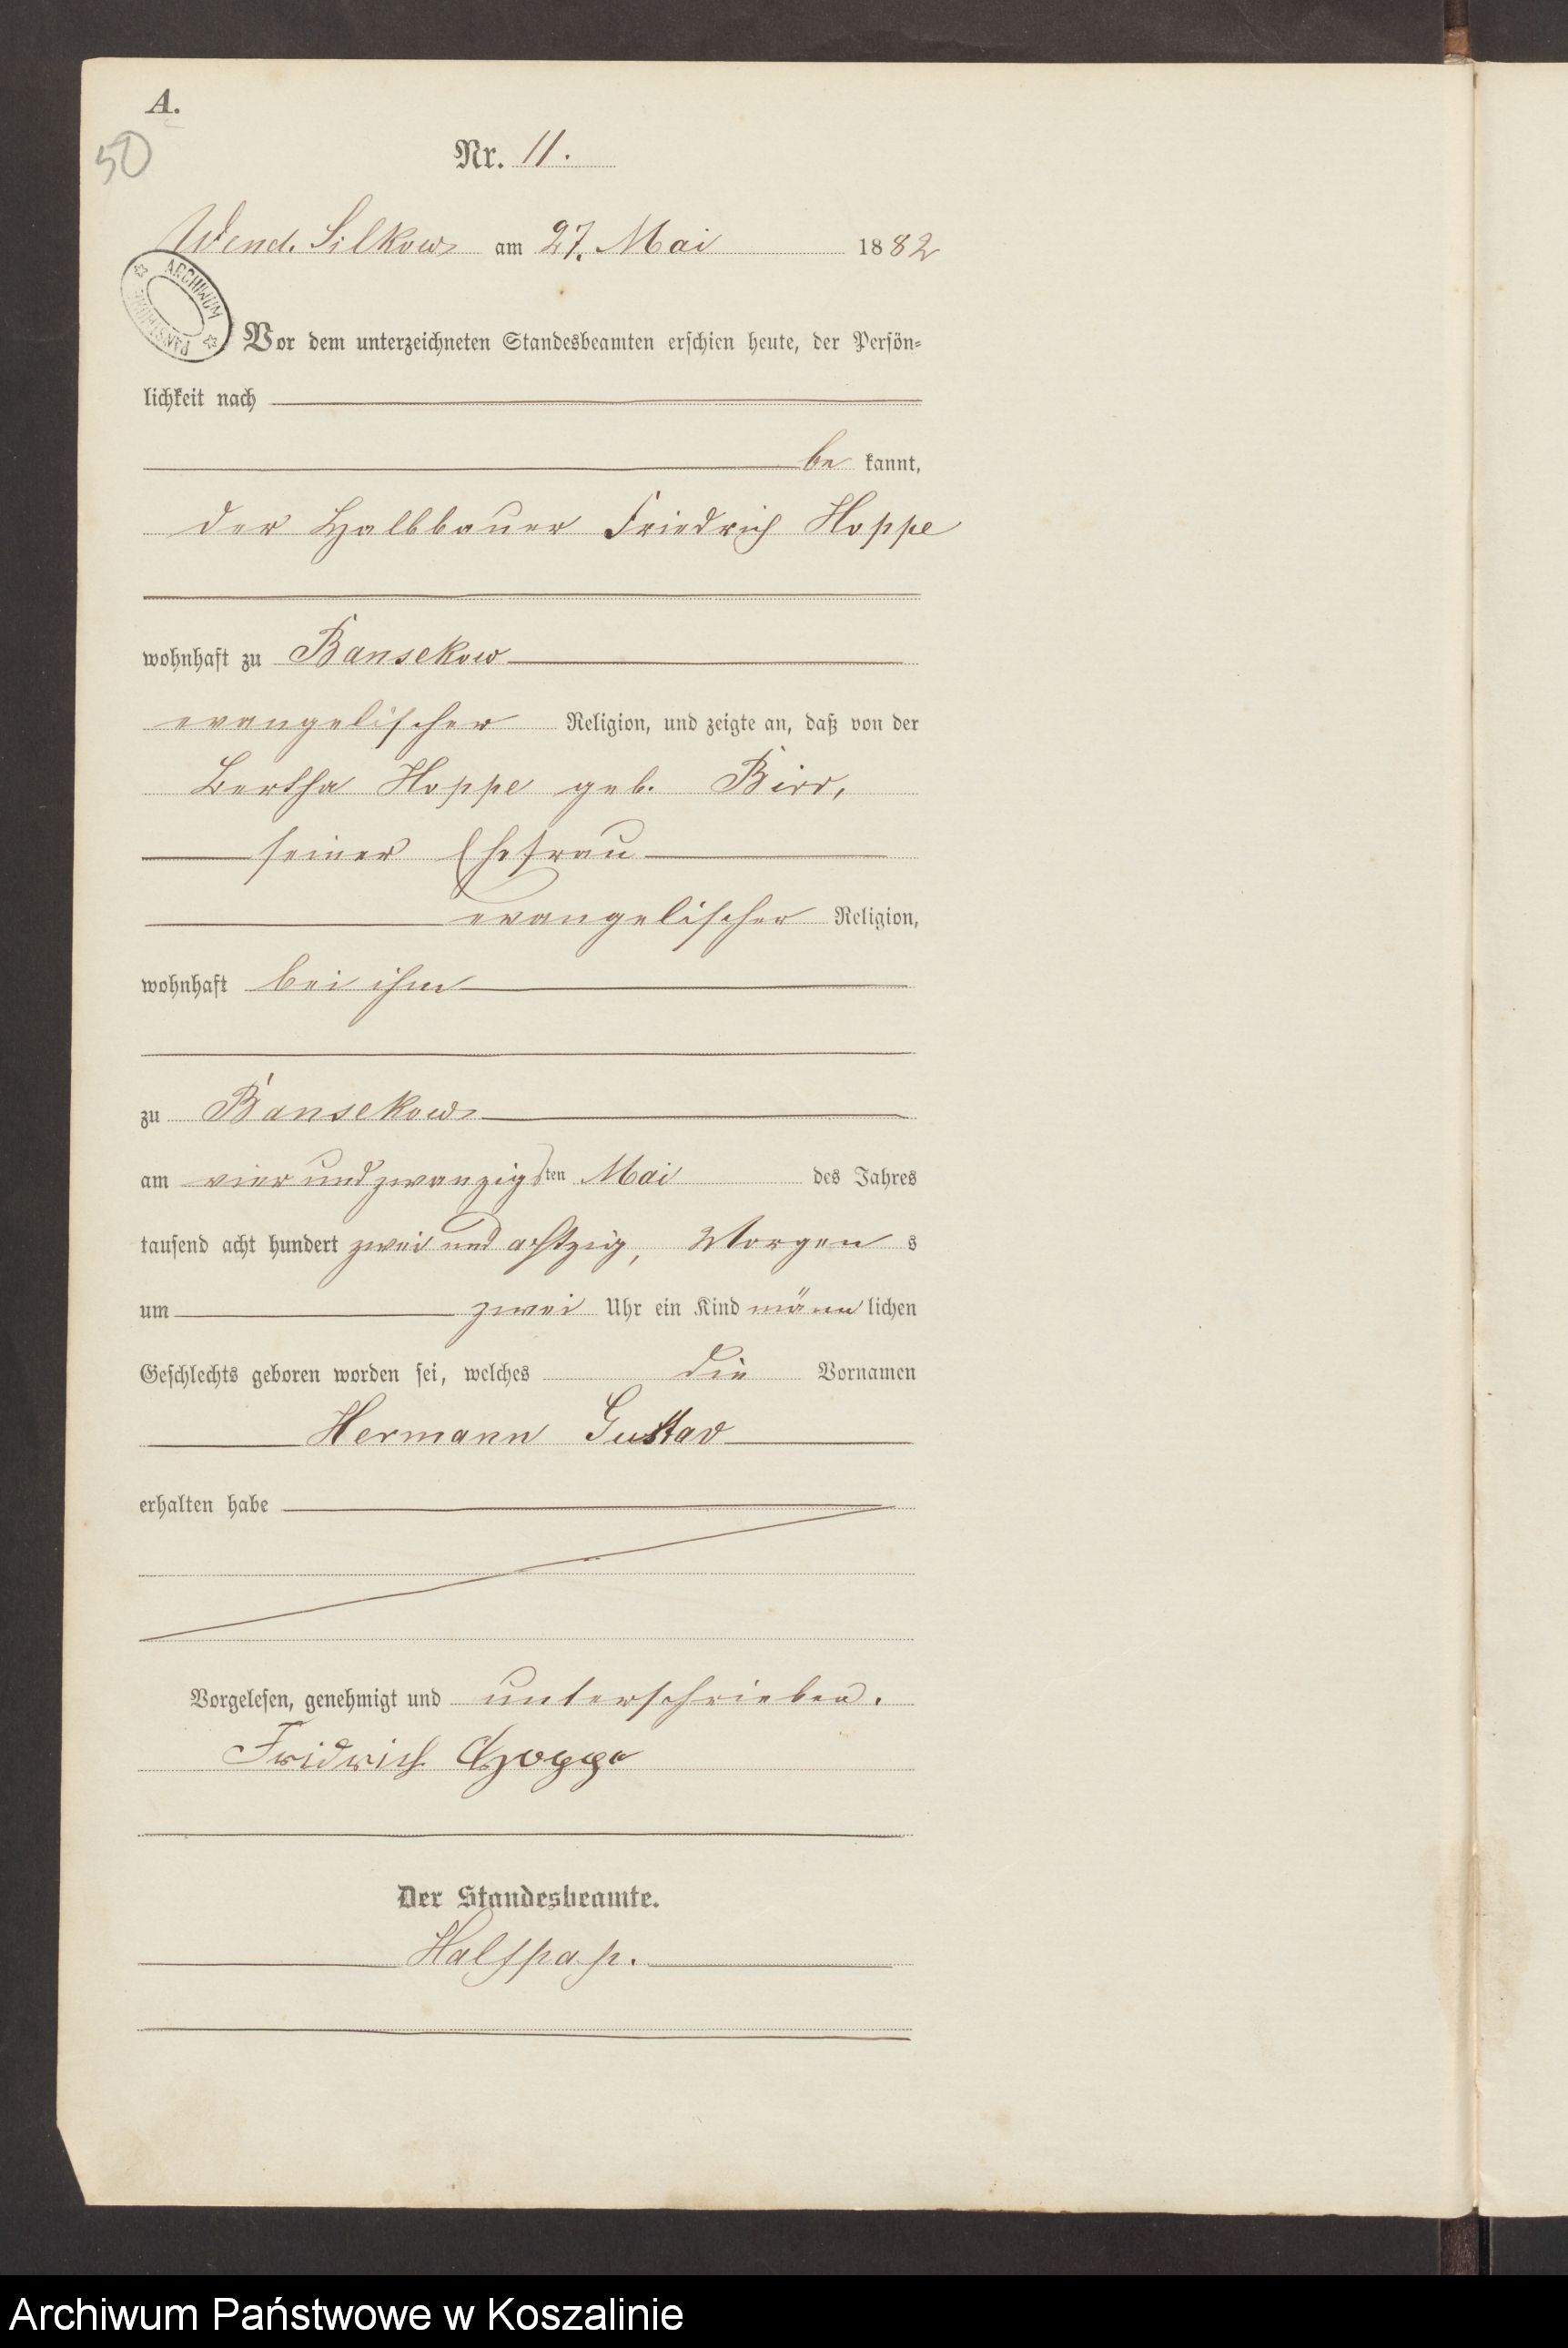 A.
50
Nr. 11.
Wend. Silkow am 27. Mai 1882
ARCHIWUM PAŃSTWOWE
Vor dem unterzeichneten Standesbeamten erschien heute, der Persön-
lichkeit nach
be kannt,
der Halbbauer Friedrich Hoppe
wohnhaft zu Bansekow
evangelischer Religion, und zeigte an, daß von der
Bertha Hoppe geb. Birr,
seiner Ehefrau
evangelischer Religion,
wohnhaft bei ihm
zu Bansekow
am vier und zwanzigsten Mai des Jahres
tausend acht hundert zwei und achtzig, Morgens
um zwei Uhr ein Kind männlichen
Geschlechts geboren worden sei, welches die Vornamen
Hermann Gustav
erhalten habe
Vorgelesen, genehmigt und unterschrieben.
Fridrich Hoppe
Der Standesbeamte.
Halfpap.
Archiwum Państwowe w Koszalinie